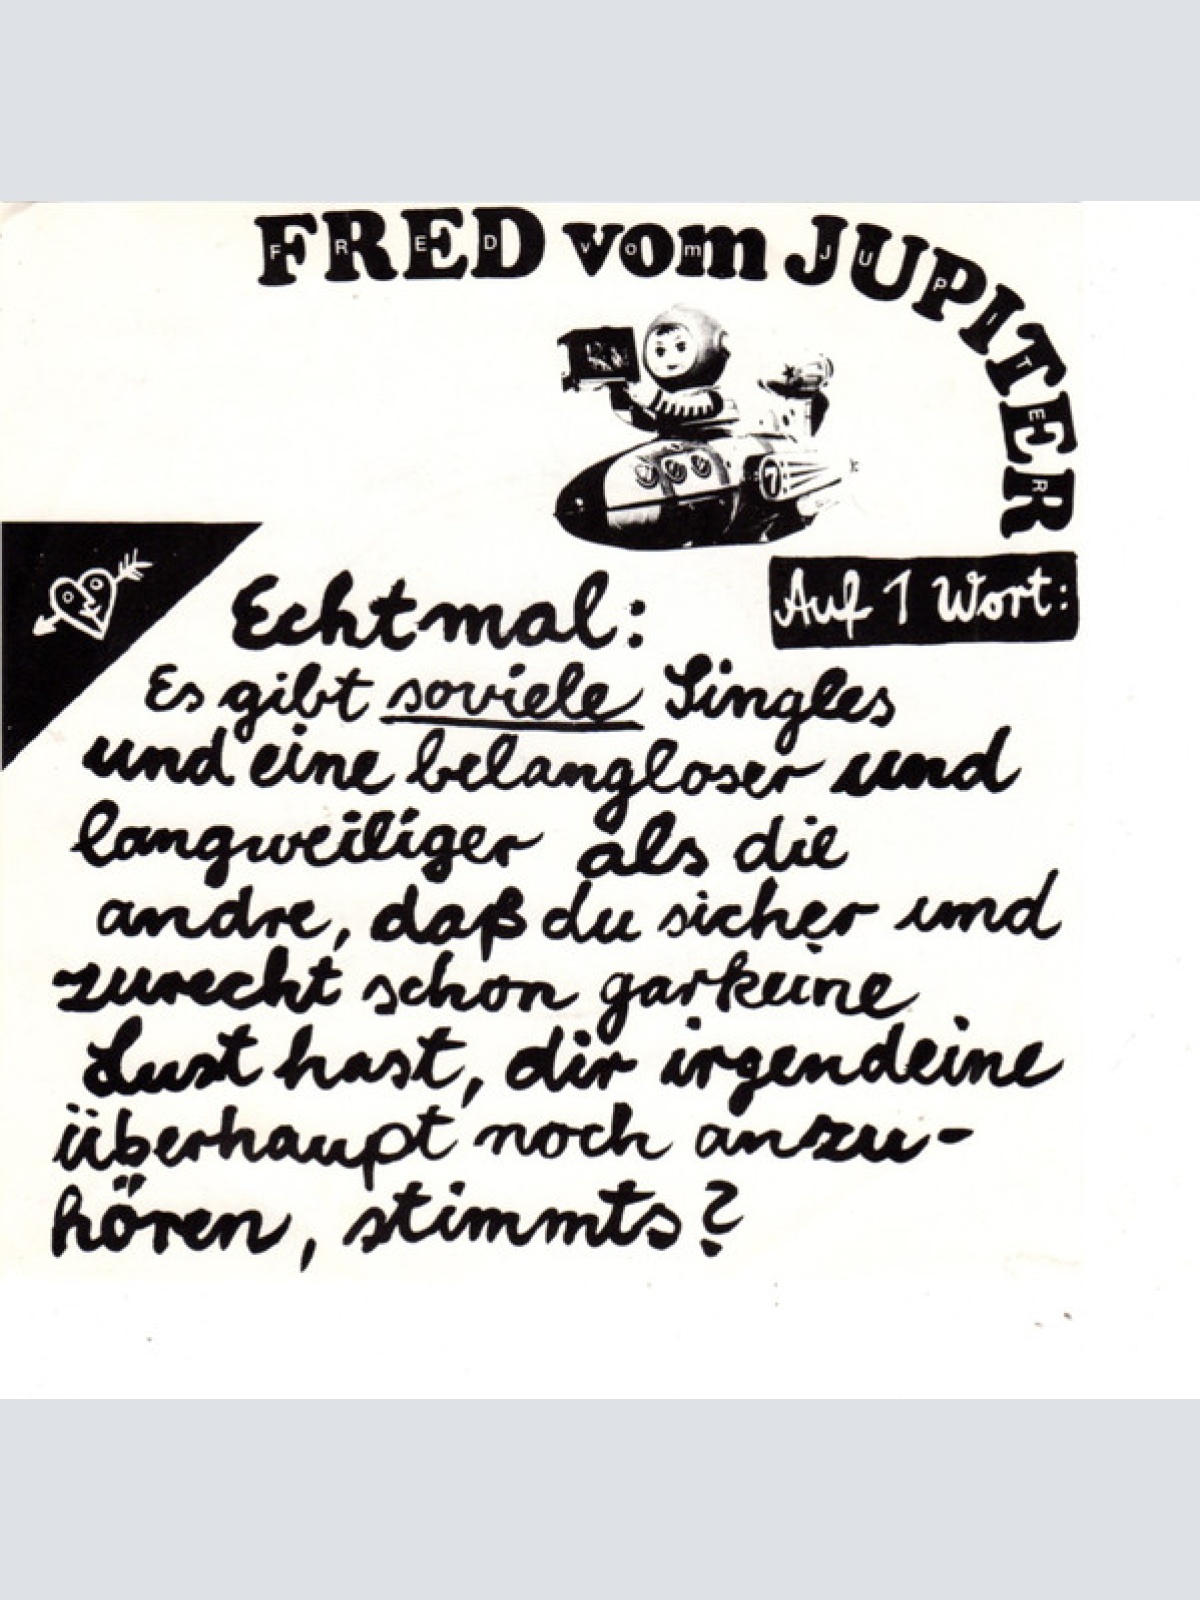 FRED vom JUPITER
7
Auf 1 Wort:
Echtmal:
Es gibt soviele Singles
und eine belangloser und
langweiliger als die
andre, daß du sicher und
zurecht schon garkeine
Lust hast, dir irgendeine
überhaupt noch anzu-
hören, stimmts?